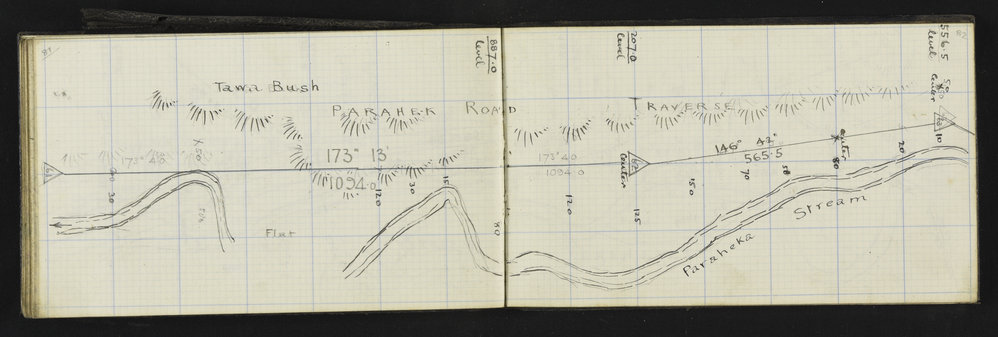 81
887.0
level
207.0
level
556.5
level
82
Tawa Bush
PARAHEK ROAD TRAVERSE
X 50
173° 40
173° 13'
1094.0
173° 40
1094.0
146° 42'
565.5
center
center
30
120
30
15
80
120
125
50
70
50
80
20
10
Flat
Paraheka Stream